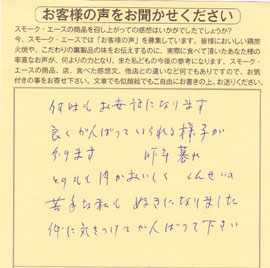 お客様の声をお聞かせください
スモーク・エースの商品を召し上がっての感想はいかがでしたでしょうか?
今、スモーク・エースでは「お客様の声」を募集しています。皆様においしい鶏炭
火焼や、こだわりの薫製品の味をお伝えするのに、実際に食べて頂いたあなた様の
率直なお声が、何よりの力となり、また私どもの今後の参考になります。スモーク・
エースの商品、店、食べた感想文、他店との違いなど何でもありですので、お気
付きの事をお寄せ下さい。文章でも似顔絵でもご自由にお書きの上、お送り下さい。
何時もお世話になります
良くがんばっていられる様子が
分ります 昨年暮れ
とのもも肉がおいしく くんせいの
苦手な私も 好きになりました
体に気をつけてがんばって下さい